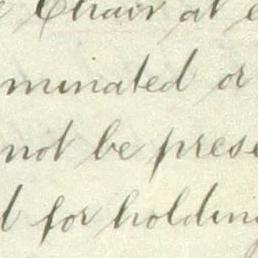 Chair at
minated or
not be prese
d for holding